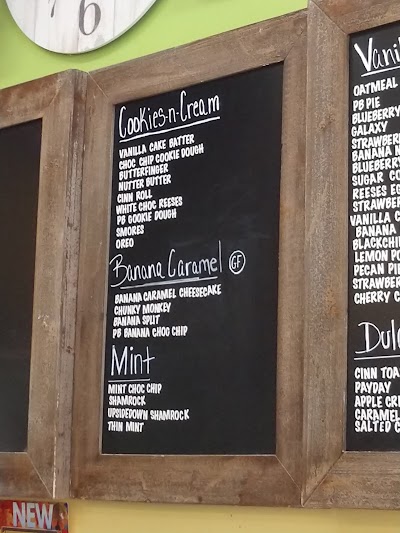 6
Cookies-n-Cream
VANILLA CAKE BATTER
CHOC CHIP COOKIE DOUGH
BUTTERFINGER
NUTTER BUTTER
CINN ROLL
WHITE CHOC REESES
PB COOKIE DOUGH
SMORES
OREO
Banana Caramel GF
BANANA CARAMEL CHEESECAKE
CHUNKY MONKEY
BANANA SPLIT
PB BANANA CHOC CHIP
Mint
MINT CHOC CHIP
SHAMROCK
UPSIDEDOWN SHAMROCK
THIN MINT
Vanil
OATMEAL
PB PIE
BLUEBERRY
GALAXY
STRAWBER
BANANA N
BLUEBERRY
SUGAR CO
REESES EG
STRAWBER
VANILLA C
BANANA
BLACKCHI
LEMON PO
PECAN PIE
STRAWBER
CHERRY C
Dul
CINN TOA
PAYDAY
APPLE CRI
CARAMEL
SALTED C
NEW